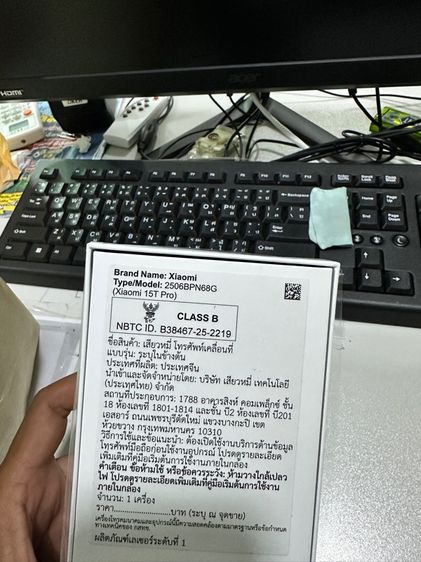 HDMI
acer
Brand Name: Xiaomi
Type/Model: 2506BPN68G
(Xiaomi 15T Pro)
CLASS B
NBTC ID. B38467-25-2219
ชื่อสินค้า: เสียวหมี่ โทรศัพท์เคลื่อนที่
แบบรุ่น: ระบุในข้างต้น
ประเทศที่ผลิต: ประเทศจีน
นำเข้าและจัดจำหน่ายโดย: บริษัท เสียวหมี่ เทคโนโลยี
(ประเทศไทย) จำกัด
สถานที่ประกอบการ: 1788 อาคารสิงห์ คอมเพล็กซ์ ชั้น
18 ห้องเลขที่ 1801-1814 และชั้น บี2 ห้องเลขที่ บี201
เอสอาร์ ถนนเพชรบุรีตัดใหม่ แขวงบางกะปิ เขต
ห้วยขวาง กรุงเทพมหานคร 10310
วิธีการใช้และข้อแนะนำ: ต้องเปิดใช้งานบริการด้านข้อมูล
โทรศัพท์มือถือก่อนใช้งานอุปกรณ์ โปรดดูรายละเอียด
เพิ่มเติมที่คู่มือเริ่มต้นการใช้งานภายในกล่อง
คำเตือน ข้อห้ามใช้ หรือข้อควรระวัง: ห้ามวางใกล้เปลว
ไฟ โปรดดูรายละเอียดเพิ่มเติมที่คู่มือเริ่มต้นการใช้งาน
ภายในกล่อง
จำนวน: 1 เครื่อง
ราคา....................บาท (ระบุ ณ จุดขาย)
เครื่องโทรคมนาคมและอุปกรณ์นี้มีความสอดคล้องตามมาตรฐานหรือข้อกำหนด
ทางเทคนิคของ กสทช.
ผลิตภัณฑ์เลเซอร์ระดับที่ 1